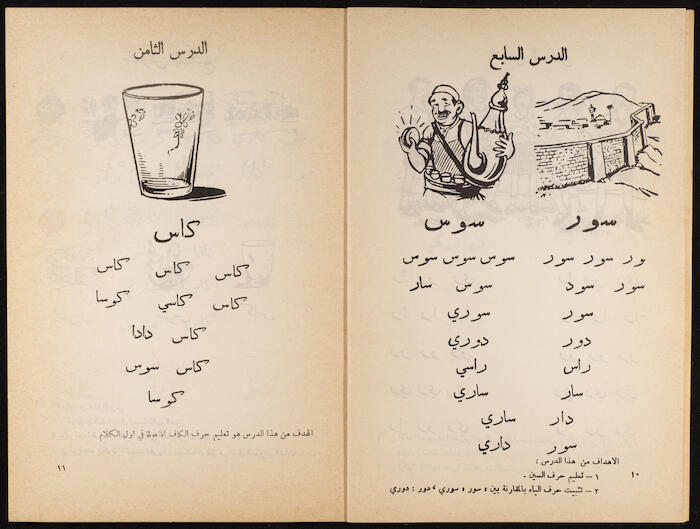 الدرس السابع
سور سوس
ور سور سور سوس سوس سوس
سور سود سوس سار
سور سوري
دور دوري
راس راسي
سار ساري
دار ساري
سور داري
الاهداف من هذا الدرس :
١ – تعليم حرف السين .
٢ – تثبيت حرف الياء بالمقارنة بين : سور ، سوري ، دور : دوري
١٠
الدرس الثامن
كاس
كاس كاس كاس
كاس كاسي كوسا
كاس دادا
كاس سوس
كوسا
الهدف من هذا الدرس هو تعليم حرف الكاف في اول الكلام
١١